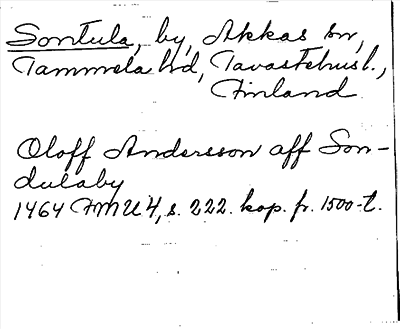 Sontula, by, Akkas sn,
Tammela hd, Tavastehusl.,
Finland
Oloff Andersson aff Son-
dulaby
1464 FMU 4, s. 222. kop. fr. 1500-t.